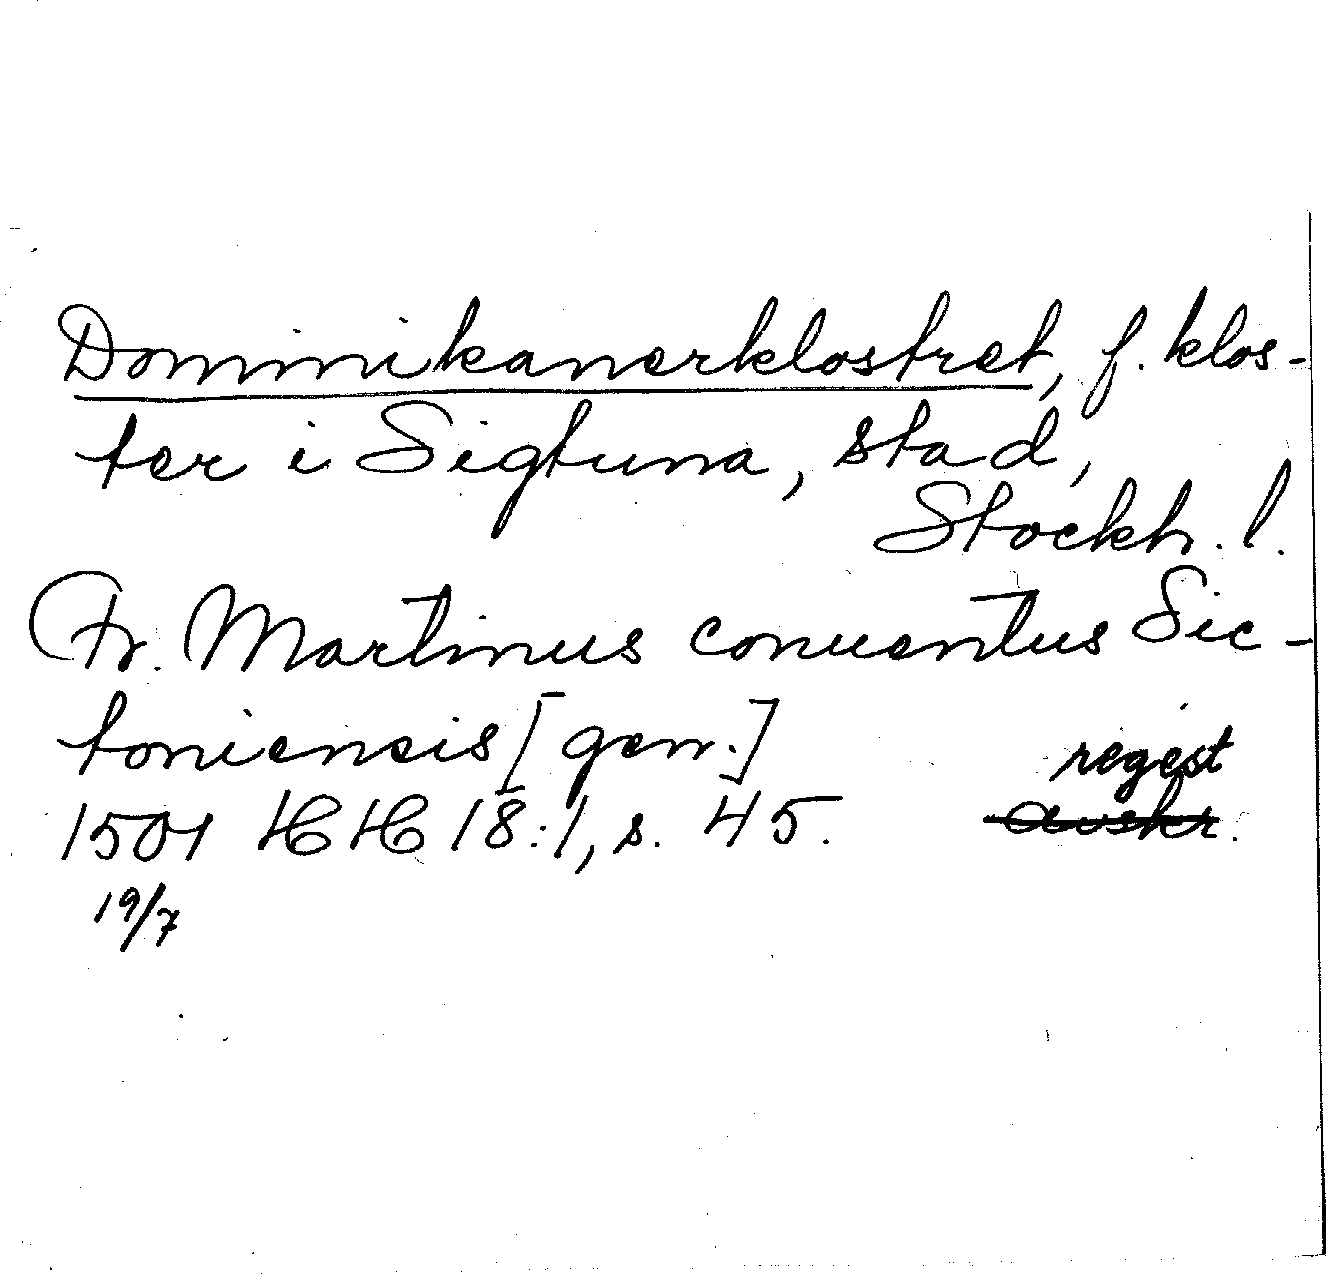 Dominikanerklostret, f. klos-
ter i Sigtuna, stad,
Stockh. l.
Fr. Martinus conuentus Sic-
toniensis [gen.]
regest
1501 HH 18:1, s. 45. avskr.
19/7